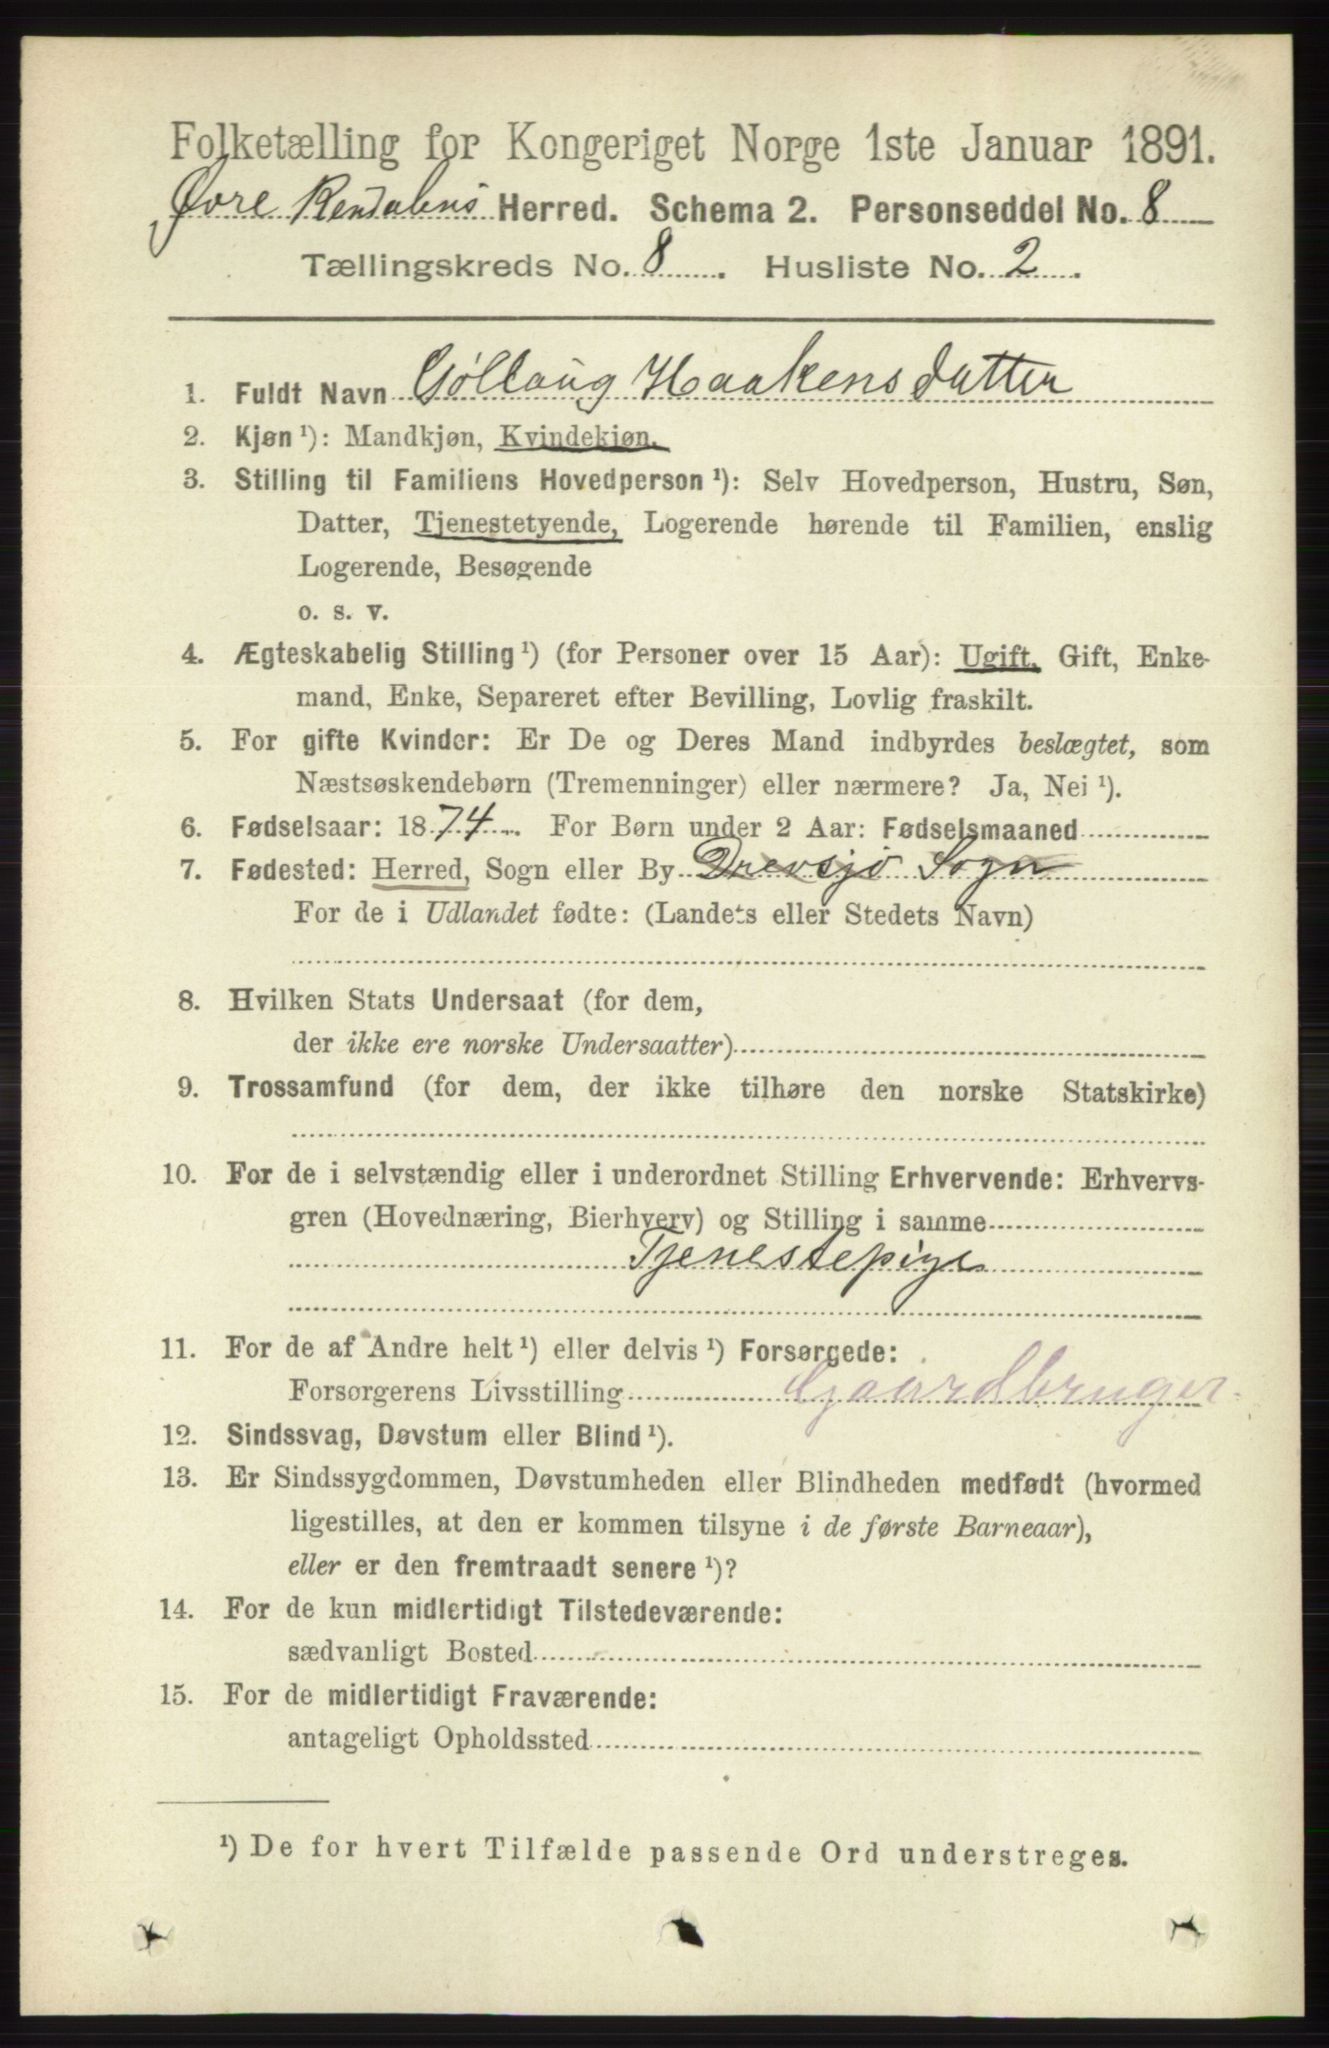 Folketælling for Kongeriget Norge 1ste Januar 1891.
Øvre Rendalens Herred. Schema 2. Personseddel No. 8
Tællingskreds No. 8. Husliste No. 2.
1. Fuldt Navn Göllaug Haakensdatter
2. Kjøn ¹): Mandkjøn, Kvindekjøn.
3. Stilling til Familiens Hovedperson ¹): Selv Hovedperson, Hustru, Søn,
Datter, Tjenestetyende, Logerende hørende til Familien, enslig
Logerende, Besøgende
o. s. v.
4. Ægteskabelig Stilling ¹) (for Personer over 15 Aar): Ugift, Gift, Enke-
mand, Enke, Separeret efter Bevilling, Lovlig fraskilt.
5. For gifte Kvinder: Er De og Deres Mand indbyrdes beslægtet, som
Næstsøskendebørn (Tremenninger) eller nærmere? Ja, Nei ¹).
6. Fødselsaar: 1874. For Børn under 2 Aar: Fødselsmaaned
7. Fødested: Herred, Sogn eller By Drevsjö Sogn
For de i Udlandet fødte: (Landets eller Stedets Navn)
8. Hvilken Stats Undersaat (for dem,
der ikke ere norske Undersaatter)
9. Trossamfund (for dem, der ikke tilhøre den norske Statskirke)
10. For de i selvstændig eller i underordnet Stilling Erhvervende: Erhvervs-
gren (Hovednæring, Bierhverv) og Stilling i samme
Tjenestepige
11. For de af Andre helt ¹) eller delvis ¹) Forsørgede:
Forsørgerens Livsstilling Gaardbruger.
12. Sindssvag, Døvstum eller Blind ¹).
13. Er Sindssygdommen, Døvstumheden eller Blindheden medfødt (hvormed
ligestilles, at den er kommen tilsyne i de første Barneaar),
eller er den fremtraadt senere ¹)?
14. For de kun midlertidigt Tilstedeværende:
sædvanligt Bosted
15. For de midlertidigt Fraværende:
antageligt Opholdssted
¹) De for hvert Tilfælde passende Ord understreges.